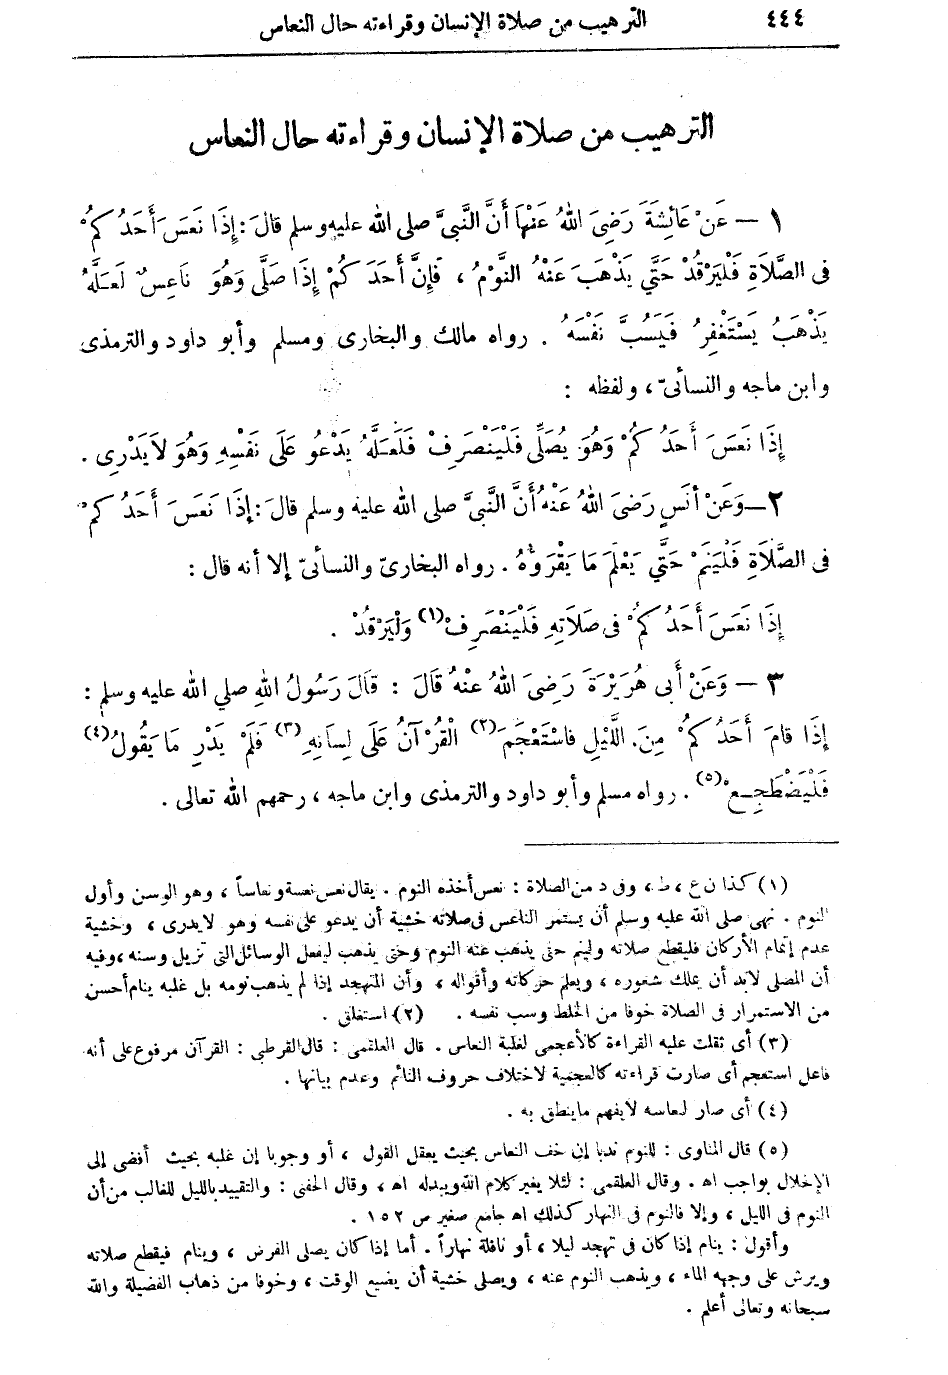 ٤٤٤ الترهيب من صلاة الإنسان وقراءته حال النعاس
الترهيب من صلاة الإنسان وقراءته حال النعاس
١ — عَنْ عَائِشَةَ رَضِيَ اللهُ عَنْهَا أَنَّ النَّبِيَّ صلى الله عليه وسلم قالَ: إِذَا نَعَسَ أَحَدُكُمْ
فى الصَّلَاةِ فَلْيَرْقُدْ حَتَّي يَذْهَبَ عَنْهُ النَّوْمُ ، فَإِنَّ أَحَدَكُمْ إِذَا صَلَّى وَهُوَ نَاعِسٌ لَعَلَّهُ
يَذْهَبُ يَسْتَغْفِرُ فَيَسُبَّ نَفْسَهُ . رواه مالك والبخارى ومسلم وأبو داود والترمذى
وابن ماجه والنسائىّ ، ولفظه :
إِذَا نَعَسَ أَحَدُكُمْ وَهُوَ يُصَلِّى فَلْيَنْصَرِفْ فَلَعَلَّهُ يَدْعُو عَلَى نَفْسِهِ وَهُوَ لَا يَدْرِى .
٢ — وَعَنْ أَنَسٍ رَضِىَ اللهُ عَنْهُ أَنَّ النَّبِىَّ صلى الله عليه وسلم قالَ: إِذَا نَعَسَ أَحَدُكُمْ
فى الصَّلَاةِ فَلْيَنَمْ حَتَّي يَعْلَمَ مَا يَقْرَؤُهُ . رواه البخارىّ والنسائىّ إلا أنه قال :
إِذَا نَعَسَ أَحَدُكُمْ فى صَلَاتِهِ فَلْيَنْصَرِفْ (١) وَلْيَرْقُدْ .
٣ — وَعَنْ أَبى هُرَيْرَةَ رَضِىَ اللهُ عَنْهُ قَالَ : قَالَ رَسُولُ اللهِ صلي الله عليه وسلم :
إِذَا قَامَ أَحَدُكُمْ مِنَ اللَّيْلِ فَاسْتَعْجَمَ (٢) الْقُرْآنُ عَلَى لِسَانِهِ (٣) فَلَمْ يَدْرِ مَا يَقُولُ (٤)
فَلْيَضْطَجِعْ (٥) . رواه مسلم وأبو داود والترمذى وابن ماجه ، رحمهم الله تعالى .
(١) كذا ن ع ، ط ، وفى د من الصلاة : نعس أخذه النوم . يقال نعس نعسة ونعاساً ، وهو الوسن وأول
النوم . نهى صلى الله عليه وسلم أن يستمر الناعس فى صلاته خشية أن يدعو على نفسه وهو لا يدرى ، وخشية
عدم إتمام الأركان فليقطع صلاته ولينم حتى يذهب عنه النوم وحتى يذهب ليفعل الوسائل التى تزيل وسنه ، وفيه
أن المصلى لابد أن يملك شعوره ، ويعلم حركاته وأقواله ، وأن المتهجد إذا لم يذهب نومه بل غلبه ينام أحسن
من الاستمرار فى الصلاة خوفا من الخلط وسب نفسه . (٢) استغلق .
(٣) أى ثقلت عليه القراءة كالأعجمى لغلبة النعاس . قال العلقمى : قال القرطبى : القرآن مرفوع على أنه
فاعل استعجم أى صارت قراءته كالعجمية لاختلاف حروف النائم وعدم بيانها .
(٤) أى صار لنعاسه لا يفهم ما ينطق به .
(٥) قال المناوى : للنوم ندبا إن خف النعاس بحيث يعقل القول ، أو وجوبا إن غلبه بحيث أفضى إلى
الإخلال بواجب اه . وقال العلقمى : لئلا يغير كلام الله ويبدله اه ، وقال الحفنى : والتقييد بالليل للغالب من أن
النوم فى الليل ، وإلا فالنوم فى النهار كذلك اه جامع صغير ص ١٥٢ .
وأقول : ينام إذا كان فى تهجد ليلا ، أو نافلة نهاراً . أما إذا كان يصلى الفرض ، وينام فيقطع صلاته
ويرش على وجهه الماء ، ويذهب النوم عنه ، ويصلى خشية أن يضيع الوقت ، وخوفا من ذهاب الفضيلة والله
سبحانه وتعالى أعلم .